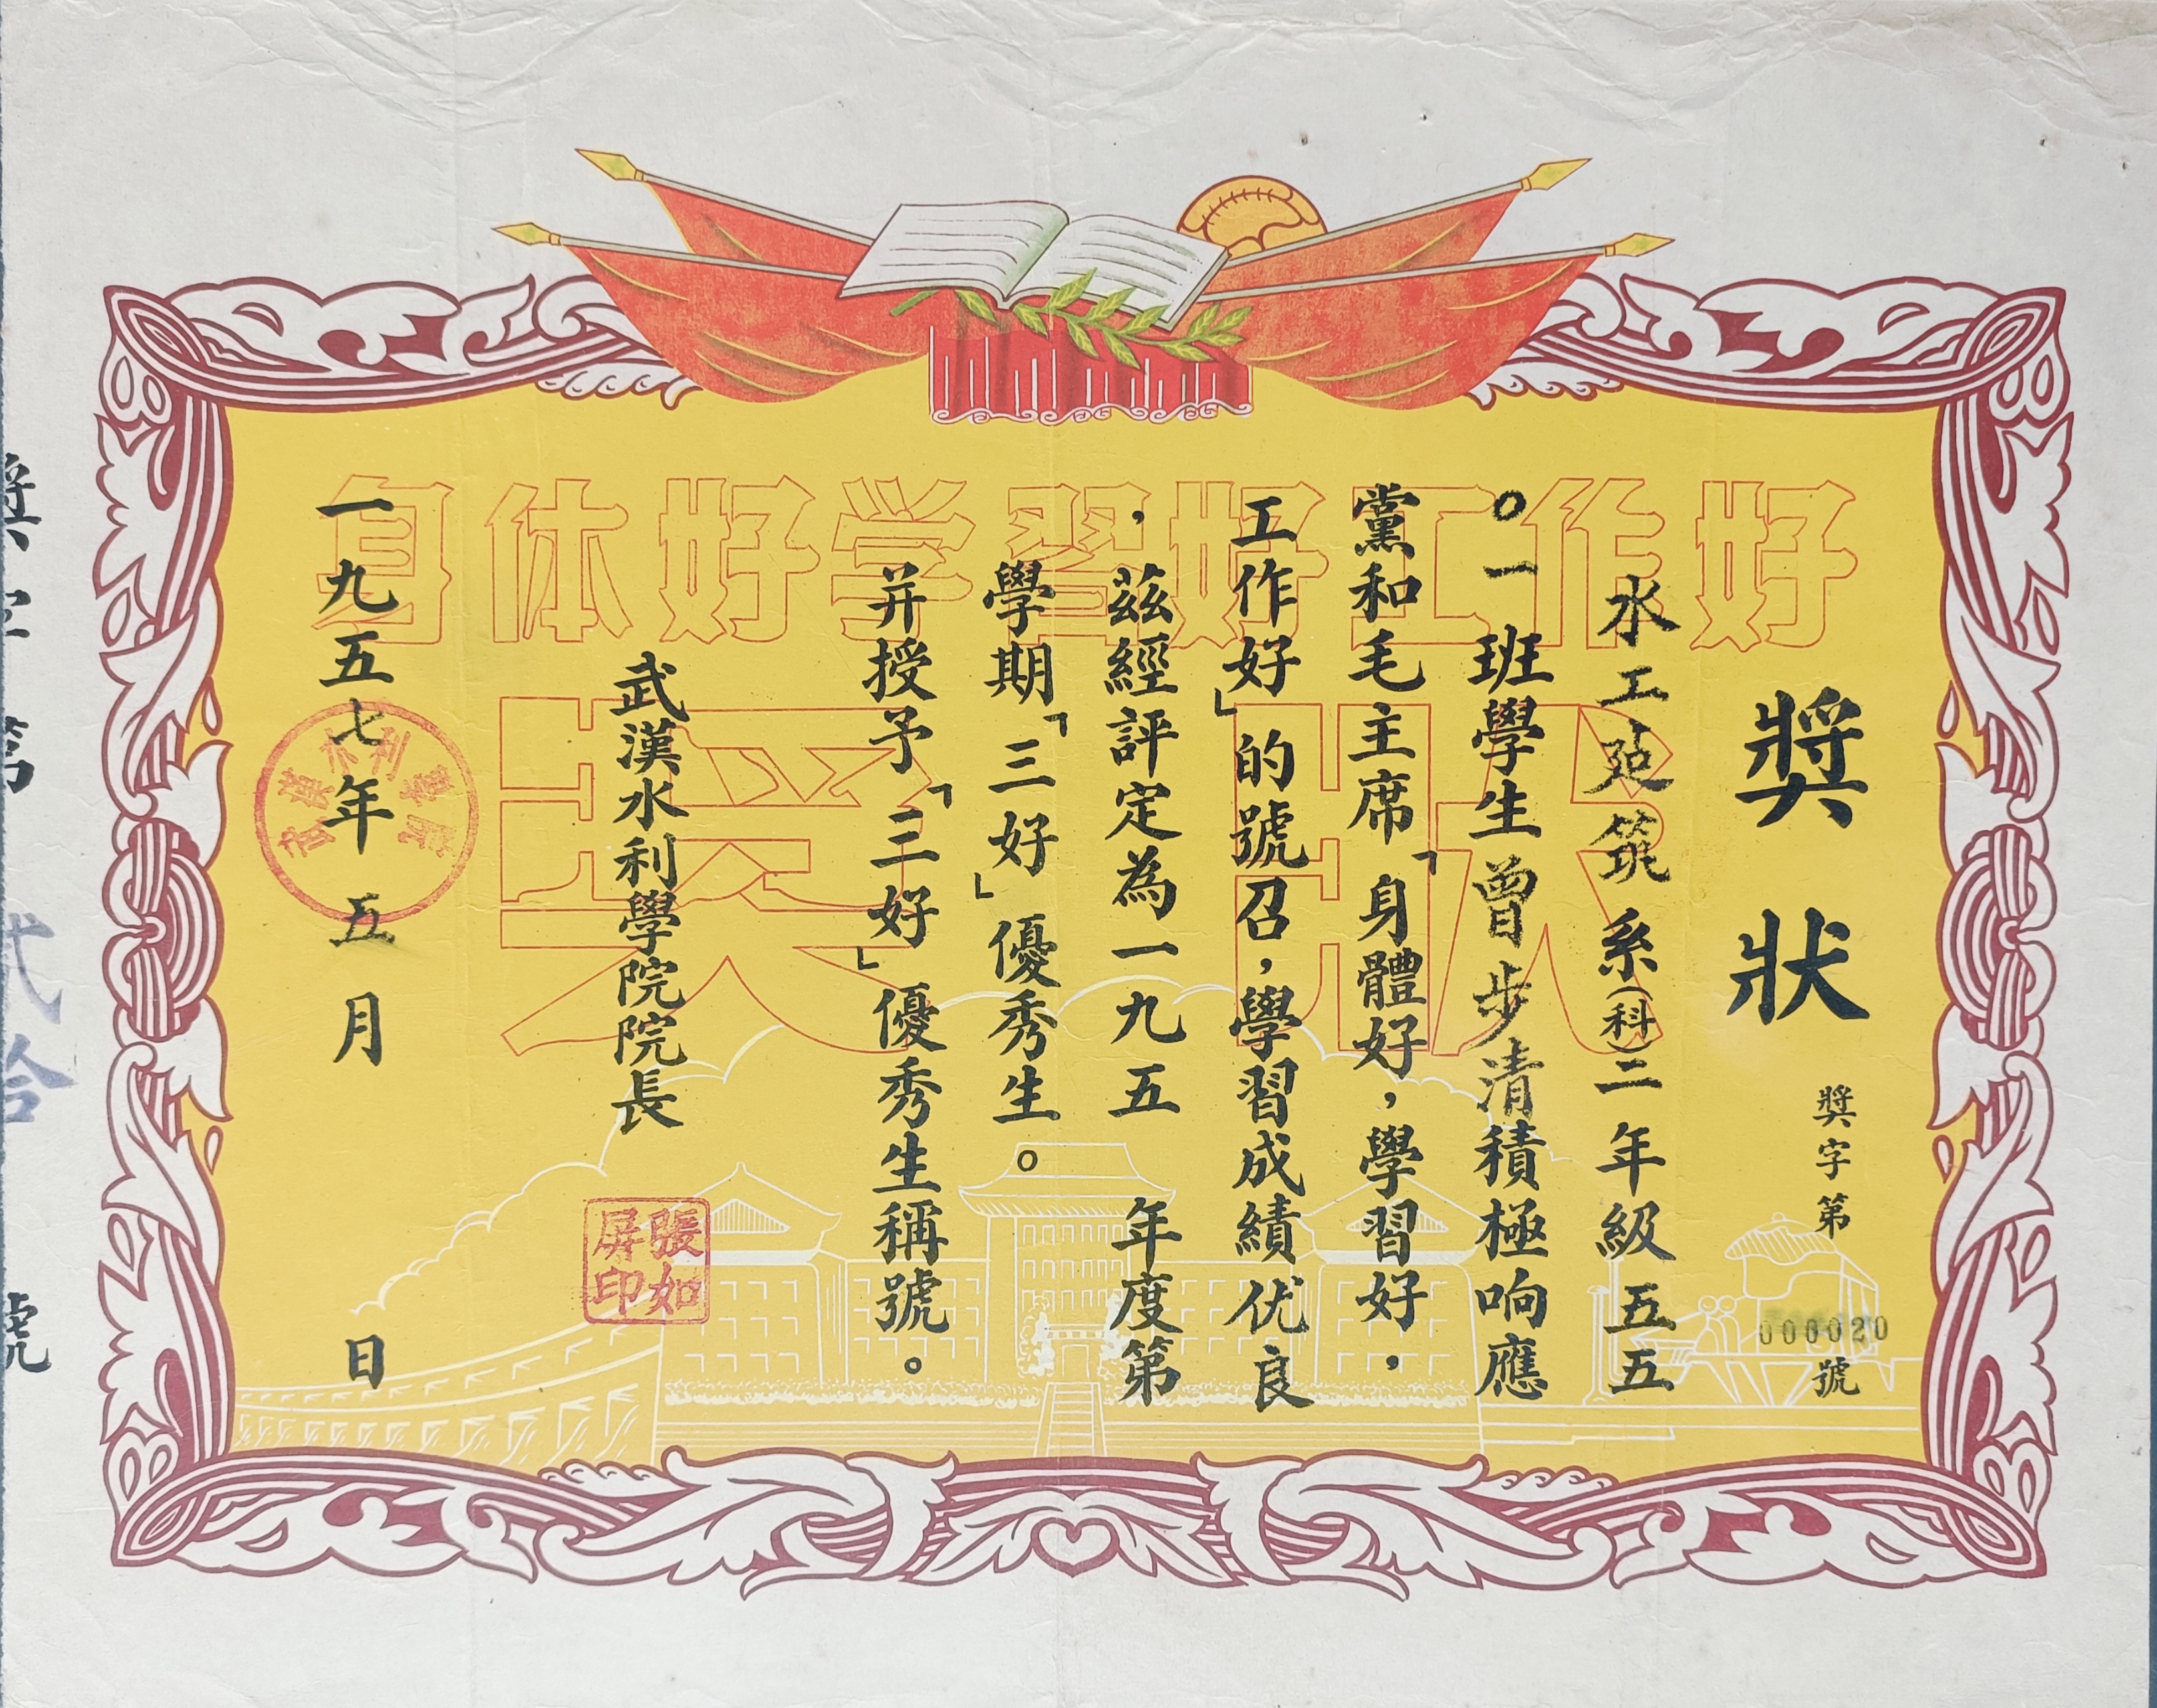 身体好学習好工作好
奖状
獎狀
獎字第
000020
號
水工建筑系(科)二年級五五
〇一班學生曾步清積極响應
黨和毛主席「身體好,學習好,
工作好」的號召,學習成績优良
,茲經評定為一九五 年度第
學期「三好」優秀生。
并授予「三好」優秀生稱號。
武漢水利學院院長
張如
屏印
一九五七年五月 日
武漢水利學院
獎字第 貳拾 號